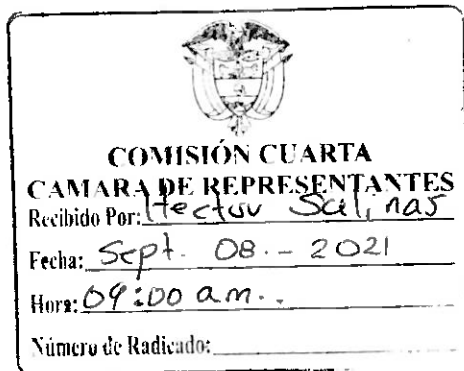 COMISIÓN CUARTA
CAMARA DE REPRESENTANTES
Recibido Por: Hector Salinas
Fecha: Sept. 08.- 2021
Hora: 09:00 a.m..
Número de Radicado: